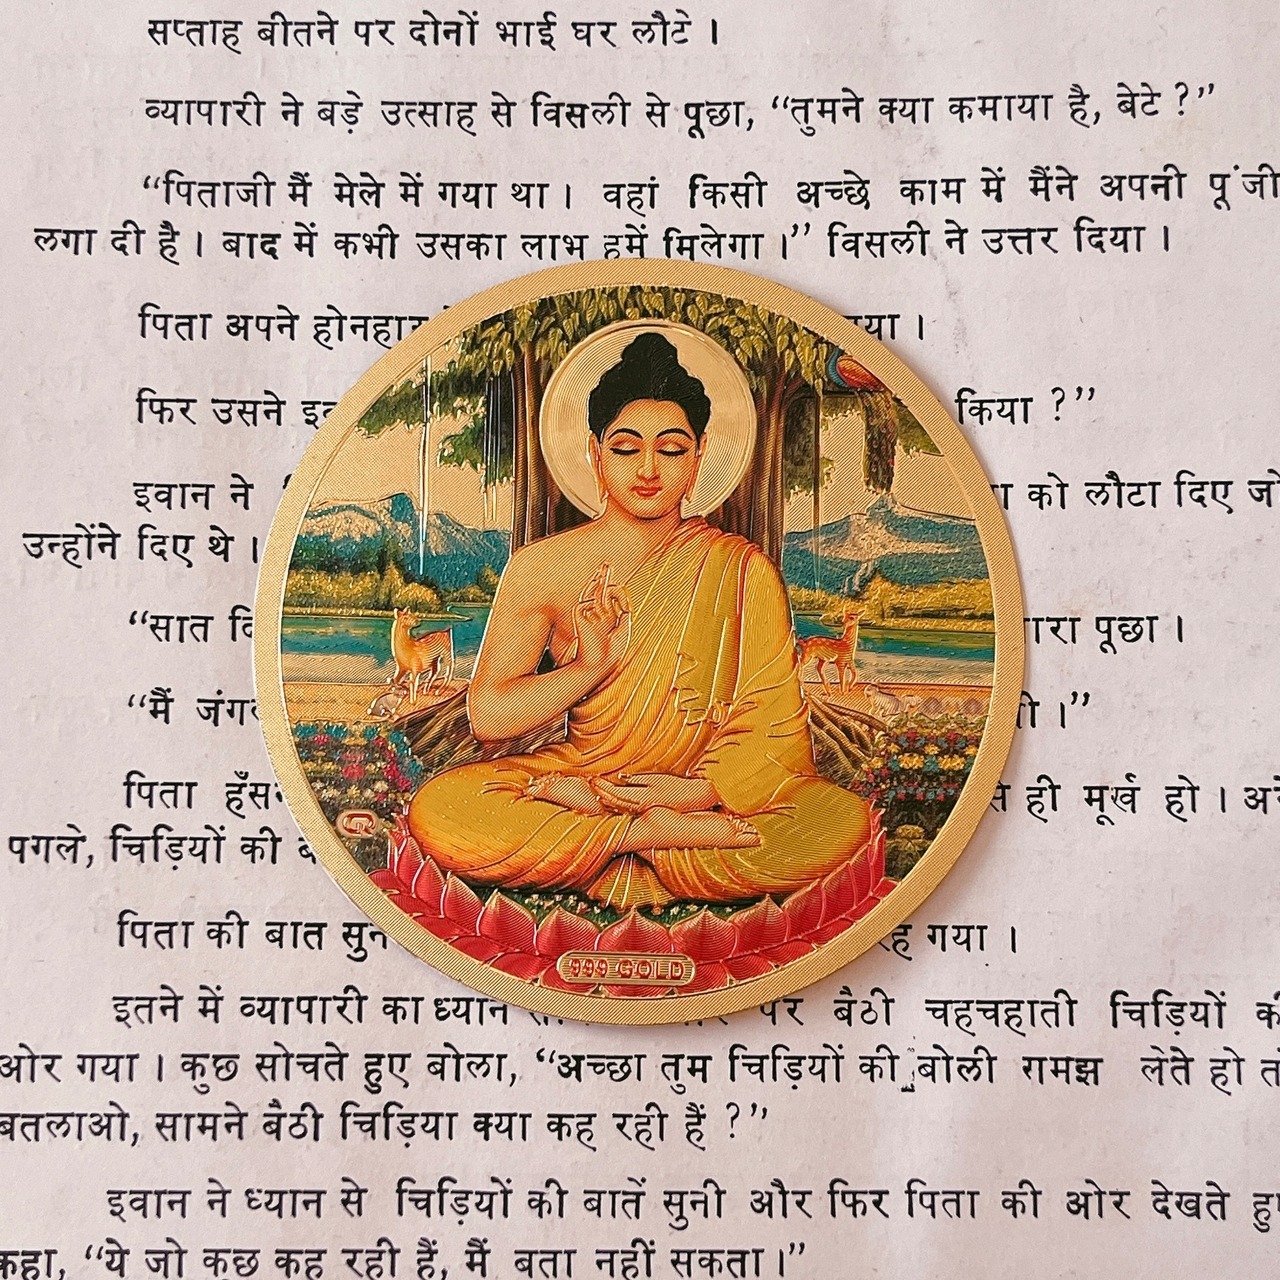 सप्ताह बीतने पर दोनों भाई घर लौटे ।
व्यापारी ने बड़े उत्साह से विसली से पूछा, “तुमने क्या कमाया है, बेटे ?”
“पिताजी मैं मेले में गया था । वहां किसी अच्छे काम में मैंने अपनी पूंजी
लगा दी है । बाद में कभी उसका लाभ हमें मिलेगा ।” विसली ने उत्तर दिया ।
पिता अपने होनहार
फिर उसने किया ?”
इवान ने को लौटा दिए जो
उन्होंने दिए थे ।
“सात पूछा ।
“मैं ।”
पिता ही मूर्ख हो ।
पगले, चिड़ियों की
पिता की बात गया ।
इतने में व्यापारी का ध्यान पर बैठी चहचहाती चिड़ियों की
ओर गया । कुछ सोचते हुए बोला, “अच्छा तुम चिड़ियों की बोली रामझ लेते हो तो
बतलाओ, सामने बैठी चिड़िया क्या कह रही हैं ?”
इवान ने ध्यान से चिड़ियों की बातें सुनी और फिर पिता की ओर देखते हुए
कहा, “ये जो कुछ कह रही हैं, मैं बता नहीं सकता ।”
999 GOLD